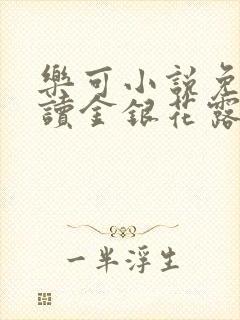 樂可小說免
讀金銀花露
一半浮生